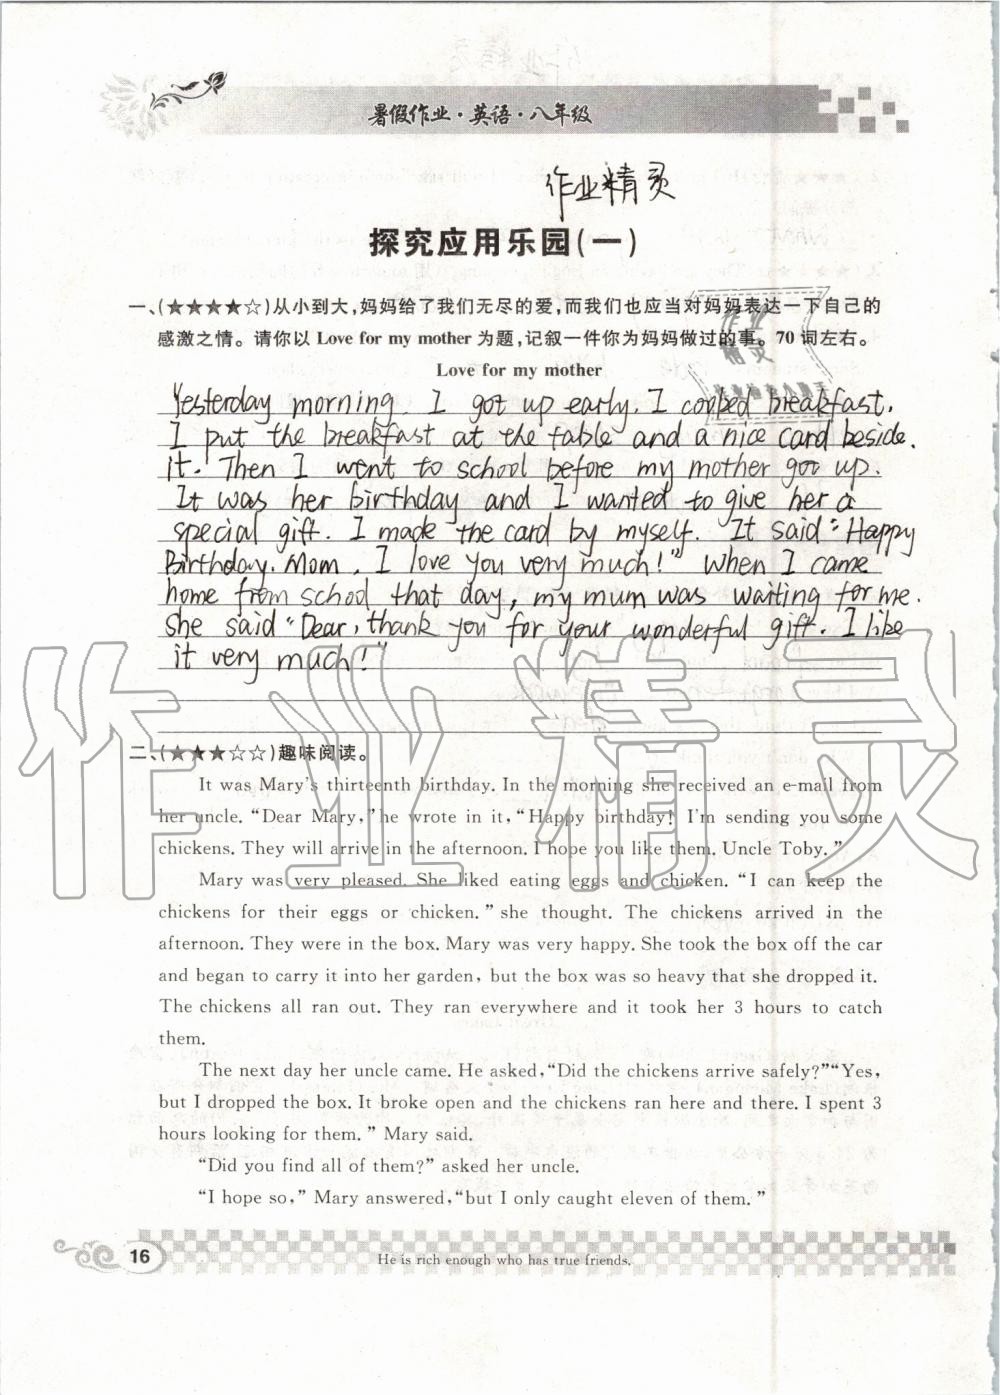 暑假作业·英语·八年级
作业精灵
探究应用乐园(一)
一、(★★★★☆)从小到大,妈妈给了我们无尽的爱,而我们也应当对妈妈表达一下自己的
感激之情。请你以 Love for my mother 为题,记叙一件你为妈妈做过的事。70 词左右。
Love for my mother
Yesterday morning. I got up early. I cooked breakfast.
I put the breakfast at the table and a nice card beside.
it. Then I went to school before my mother got up.
It was her birthday and I wanted to give her a
special gift. I made the card by myself. It said: "Happy
Birthday. Mom, I love you very much!" When I came
home from school that day, my mum was waiting for me.
She said "Dear, thank you for your wonderful gift. I like
it very much!"
二、(★★★☆☆)趣味阅读。
It was Mary's thirteenth birthday. In the morning she received an e-mail from
her uncle. "Dear Mary," he wrote in it, "Happy birthday! I'm sending you some
chickens. They will arrive in the afternoon. I hope you like them. Uncle Toby."
Mary was very pleased. She liked eating eggs and chicken. "I can keep the
chickens for their eggs or chicken." she thought. The chickens arrived in the
afternoon. They were in the box. Mary was very happy. She took the box off the car
and began to carry it into her garden, but the box was so heavy that she dropped it.
The chickens all ran out. They ran everywhere and it took her 3 hours to catch
them.
The next day her uncle came. He asked, "Did the chickens arrive safely?" "Yes,
but I dropped the box. It broke open and the chickens ran here and there. I spent 3
hours looking for them." Mary said.
"Did you find all of them?" asked her uncle.
"I hope so," Mary answered, "but I only caught eleven of them."
16
He is rich enough who has true friends.
作业精灵
作业
精灵